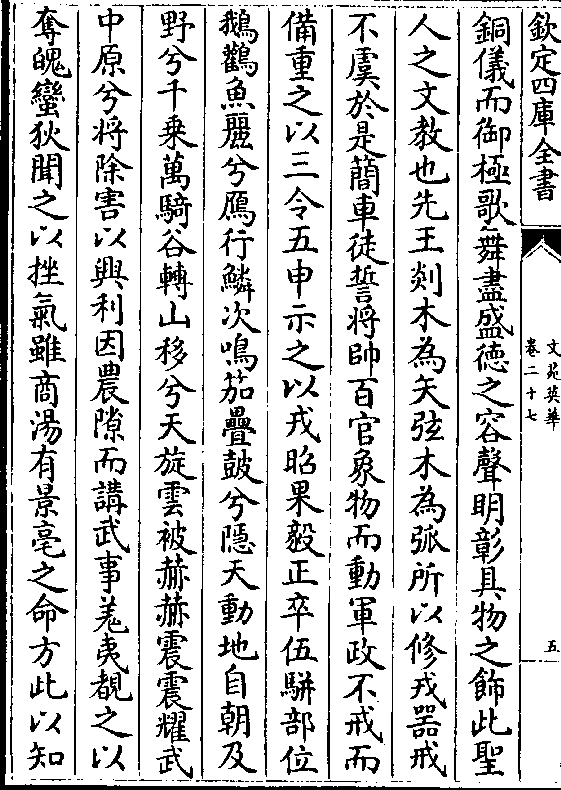 欽定四庫全書
文苑英華
卷二十七
五
銅儀而御極歌舞盡盛徳之容聲明彰具物之飾此聖
人之文教也先王剡木為矢弦木為弧所以修戎器戒
不虞於是簡車徒誓將帥百官象物而動軍政不戒而
備重之以三令五申示之以戎昭果毅正卒伍駢部位
鵝鸛魚麗兮鴈行鱗次鳴笳疊鼓兮隱天動地自朝及
野兮千乗萬騎谷轉山移兮天旋雲被赫赫震震耀武
中原兮將除害以興利因農隙而講武事羗夷覩之以
奪魄蠻狄聞之以挫氣雖商湯有景亳之命方此以知